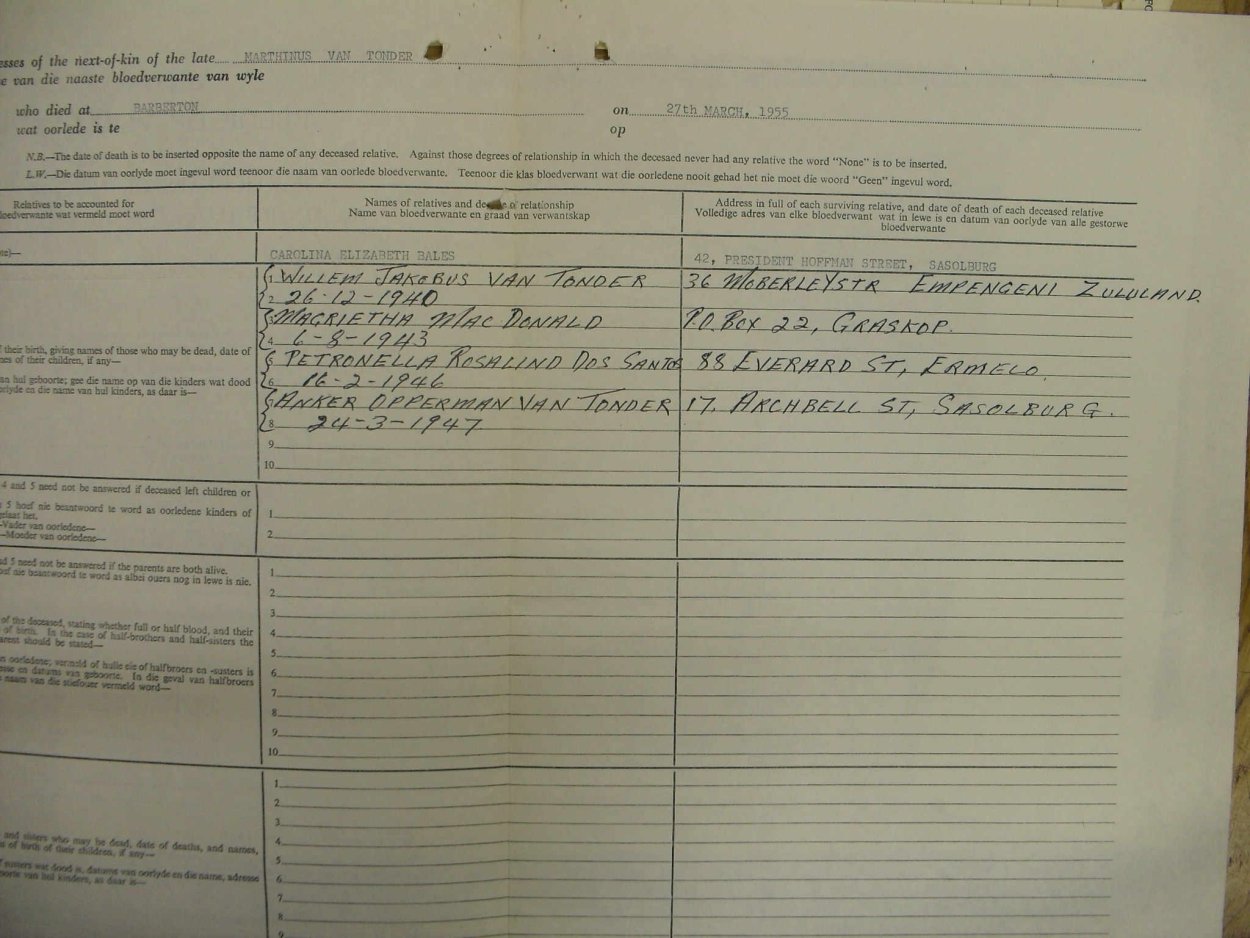 esses of the next-of-kin of the late MARTHINUS VAN TONDER
e van die naaste bloedverwante van wyle
who died at BARBERTON on 27th MARCH, 1955
wat oorlede is te op
N.B.—The date of death is to be inserted opposite the name of any deceased relative. Against those degrees of relationship in which the decesaed never had any relative the word "None" is to be inserted.
L.W.—Die datum van oorlyde moet ingevul word teenoor die naam van oorlede bloedverwante. Teenoor die klas bloedverwant wat die oorledene nooit gehad het nie moet die woord "Geen" ingevul word.
Relatives to be accounted for
loedverwante wat vermeld moet word
Names of relatives and degree of relationship
Name van bloedverwante en graad van verwantskap
Address in full of each surviving relative, and date of death of each deceased relative
Volledige adres van elke bloedverwant wat in lewe is en datum van oorlyde van alle gestorwe
bloedverwante
CAROLINA ELIZABETH BALES 42, PRESIDENT HOFFMAN STREET, SASOLBURG
1 WILLEM JAKOBUS VAN TONDER 36 MOBERLEYSTR EMPENGENI ZULULAND.
2 26-12-1940
3 MAGRIETHA MAC DONALD P.O. BOX 22, GRASKOP.
4 6-8-1943
5 PETRONELLA ROSALIND DOS SANTOS 88 EVERARD ST, ERMELO.
6 16-2-1946
7 ANKER OPPERMAN VAN TONDER 17, ARCHBELL ST, SASOLBURG.
8 24-3-1947
9
10
their birth, giving names of those who may be dead, date of
nes of their children, if any—
an hul geboorte; gee die name op van die kinders wat dood
orlyde en die name van hul kinders, as daar is—
4 and 5 need not be answered if deceased left children or
5 hoef nie beantwoord te word as oorledene kinders of
gelaat het.
—Vader van oorledene—
—Moeder van oorledene—
1
2
nd 5 need not be answered if the parents are both alive.
oef nie beantwoord te word as albei ouers nog in lewe is nie.
of the deceased, stating whether full or half blood, and their
of birth. In the case of half-brothers and half-sisters the
arent should be stated—
n oorledene; vermeld of hulle eie of halfbroers en -susters is
esse en datums van geboorte. In die geval van halfbroers
naam van die stiefouer vermeld word—
1
2
3
4
5
6
7
8
9
10
and sisters who may be dead, date of deaths, and names,
s of birth of their children, if any—
susters wat dood is, datums van oorlyde en die name, adresse
oorte van hul kinders, as daar is—
1
2
3
4
5
6
7
8
9